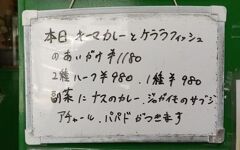 本日 キーマカレーとケララフィッシュ
のあいがけ ¥1180
2種ハーフ ¥980. 1種 ¥980
副菜に ナスのカレー、ジャガイモのサブジ
アチャール、パパドがつきます